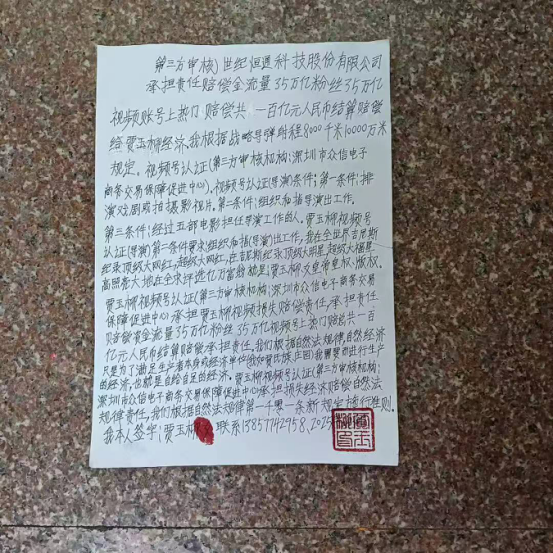 第三方审核)世纪恒通科技股份有限公司
承担责任赔偿金流量35万亿粉丝35万亿
视频账号上热门赔偿共一百亿元人民币结算赔偿
给贾玉柳经济,我根据战略导弹射程8000千米10000万米
规定。视频号认证(第三方审核机构:深圳市众信电子
商务交易保障促进中心)。视频号认证(导演)条件:第一条件:排
演戏剧或拍摄影视片。第二条件:组织和指导演出工作。
第三条件:经过五部电影担任导演工作的人。贾玉柳视频号
认证(导演)第二条件要求组织和指(导演)出工作,我在全世界吉尼斯
纪录顶级大网红,超级大网红,在吉尼斯纪录顶级大明星超级大福星
高照贾玉柳
贾玉柳视频号认证(第三方审核机构:深圳市众信电子商务交易
保障促进中心承担贾玉柳视频损失赔偿责任,承担责任
赔偿资金流量35万亿粉丝35万亿视频号上热门赔偿共一百
亿元人民币结算赔偿承担责任,我们根据自然法规律,自然经济
只是为了满足生产者本身或经济单位(我如贾氏族庄园)我需要而进行生产
的经济,也就是自给自足的经济。贾玉柳视频号认证(第三方审核机构:
深圳市众信电子商务交易保障促进中心承担损失经济赔偿自然法
规律责任,我们根据自然法规律第一千零一条新规定施行准则。
我本人签字:贾玉柳 联系13857742958,2025